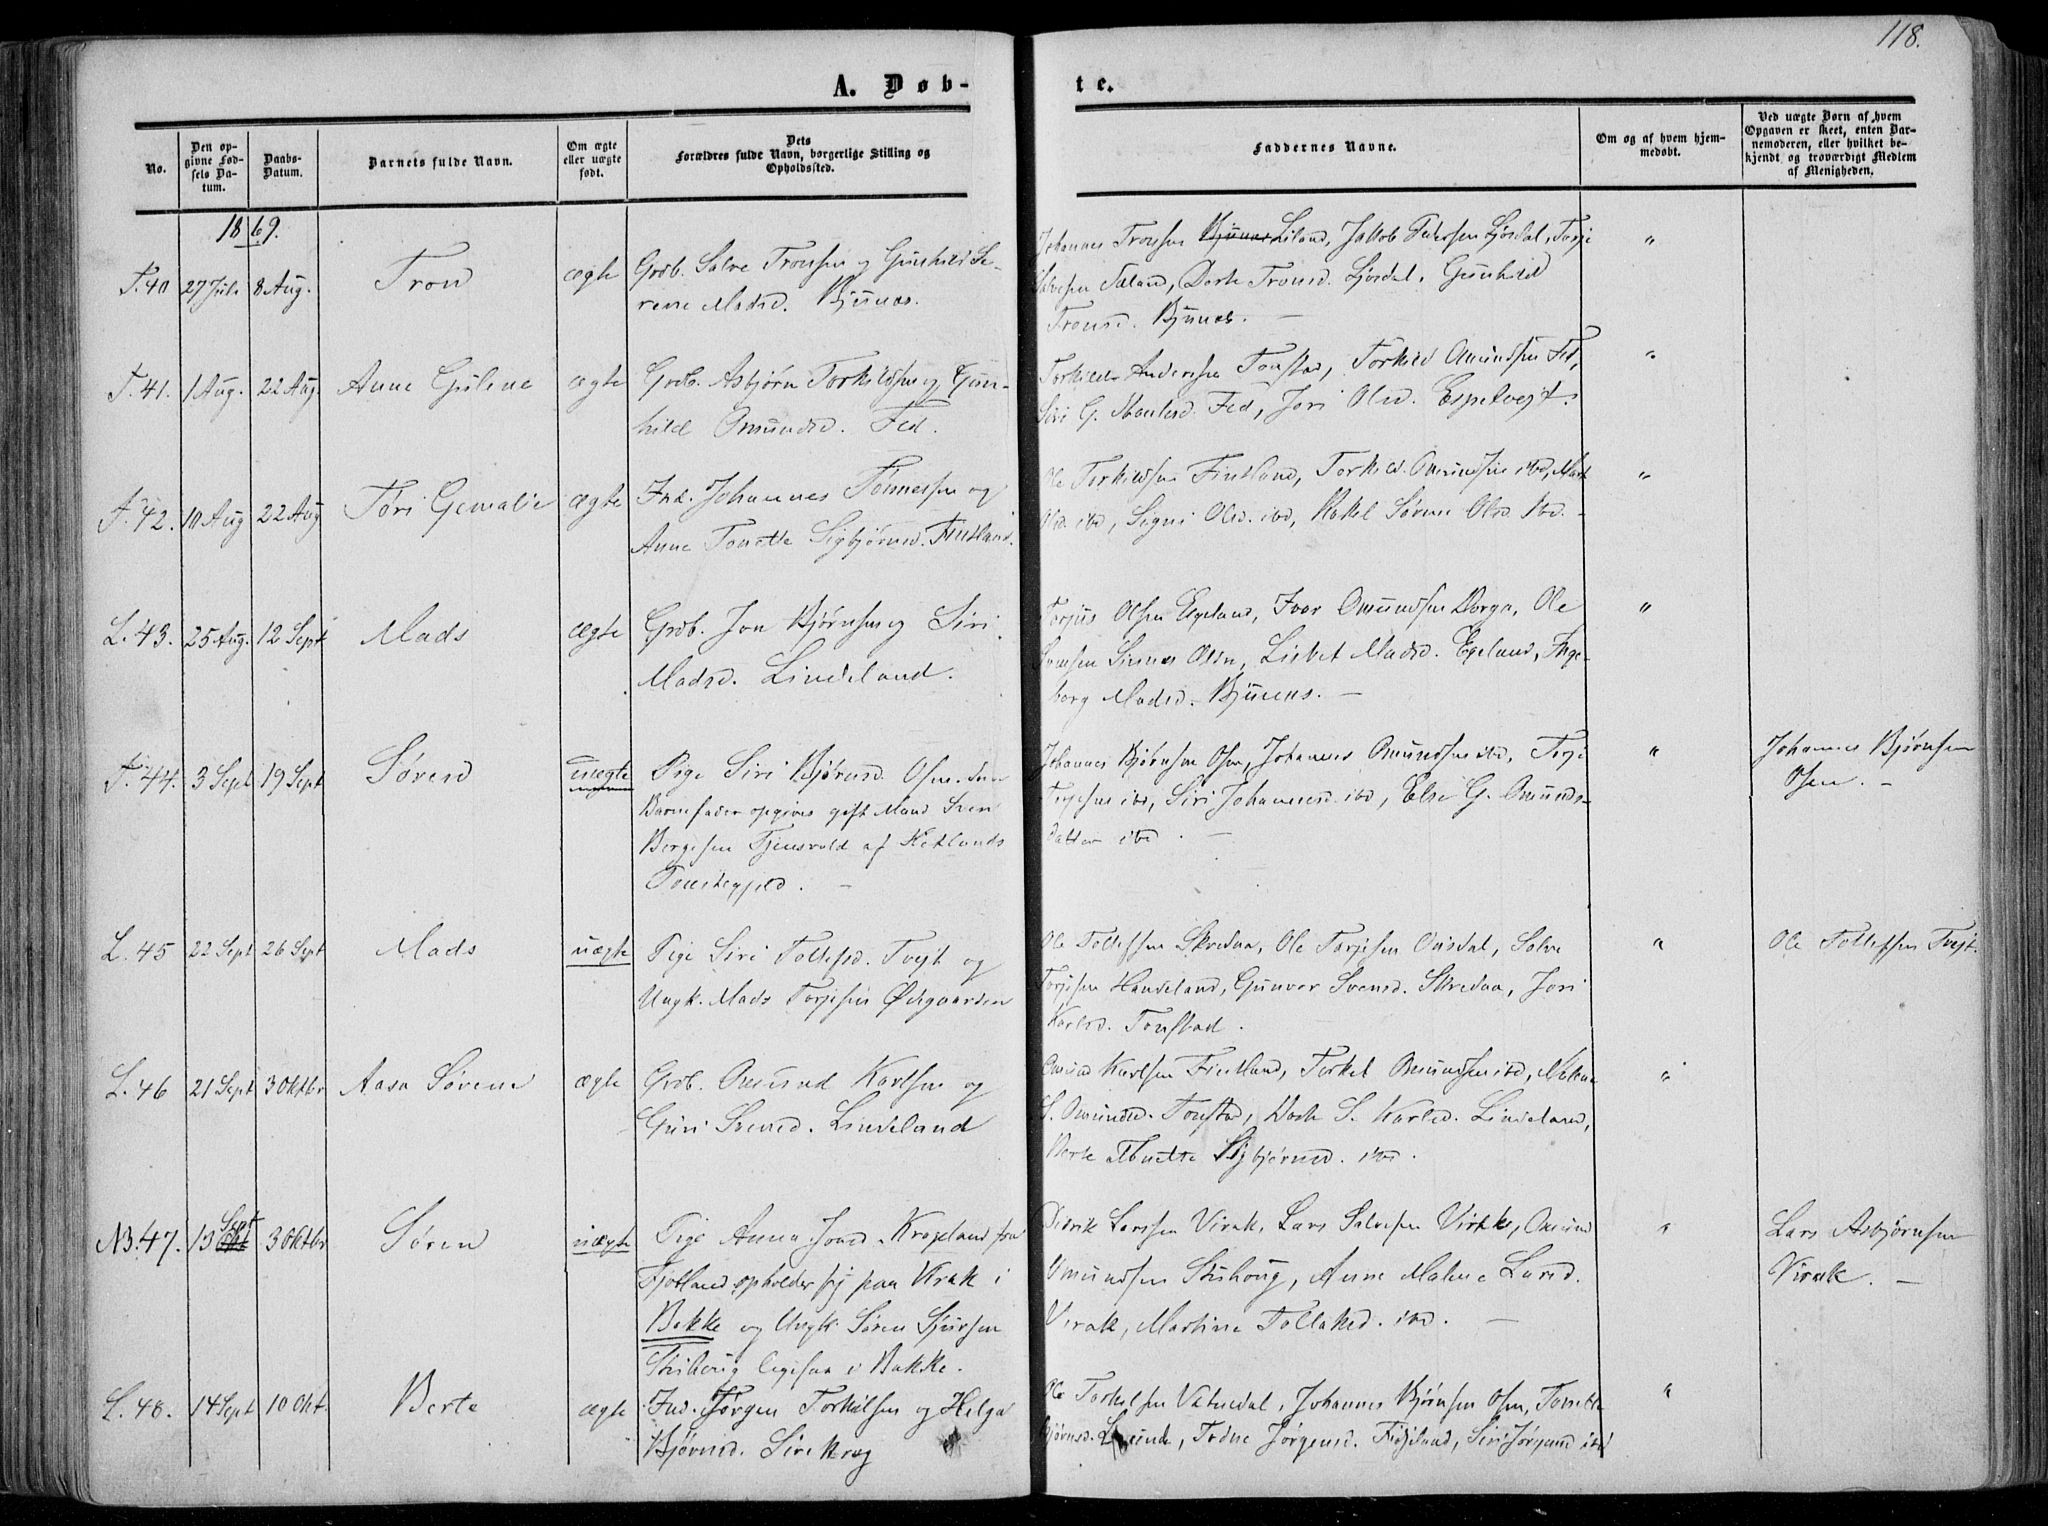 118.
A. Døb-
te.
No.
Den op-
givne Fød-
sels Da-
tum.
Daabs-
Datum.
Barnets fulde Navn.
Om ægte
eller uægte
født.
Dets
Forældres fulde Navn, borgerlige Stilling og
Opholdssted.
Faddernes Navne.
Om og af hvem hjem-
medøbt.
Ved uægte Børn af hvem
Opgaven er skeet, enten Bar-
nemoderen, eller hvilket be-
kjendt og troværdigt Medlem
af Menigheden.
1869.
T. 40 27 Juli 8 Aug. Tron ægte
Grdb. Salve Tronsen og Gunhild Se-
rene Madsd. Bjunes.
Johannes Tronsen Bjunes Liland, Jakob Pedersen Ljosdal, Terje
Salvesen Søland, Dorte Tronsd. Ljosdal, Gunhild
Tronsd. Bjunes. —
"
T. 41. 1 Aug. 22 Aug. Anne Guline ægte
Grdb. Asbjørn Torkildsen og Gun-
hild Omundsd. Fed.
Torkild Andersen Tonstad, Torkild Omundsen Fed,
Siri G. Fed, Jori Olsd. Espetvejt.
"
T. 42. 10 Aug 22 Aug Tøri Gemalie ægte
Ind. Johannes Tønnessen og
Anne Tonette Sigbjørnsd. Fintland.
Ole Torkildsen Fintland, Torkild Omundsen ibd,
Olsd. ibd, Signi Olsd. ibd, Sørene Olsd. ibd. -
"
L. 43. 25 Aug. 12 Sept Mads ægte
Grdb. Jon Bjørnsen og Siri
Madsd. Lindeland.
Torjus Olsen Egeland, Ivar Omundsen Dorga, Ole
Svensen Sirnes Osen, Lisbet Madsd. Egeland, Inge-
borg Madsd. Bjunes. —
"
T. 44. 3 Sept 19 Sept Søren uægte
Pige Siri Bjørnsd. Osen. Som
Barnefader opgives gift Mand Sven
Børgesen Tjensvold af Hetlands
Præstegjeld. —
Johannes Bjørnsen Osen, Johannes Omundsen ibd, Terje
Terjesen ibd, Siri Johannesd. ibd, Else G. Omunds-
datter ibd. —
"
Johannes Bjørnsen
Osen. —
L. 45 22 Sept 26 Sept Mads uægte
Pige Siri Tollefsd. Tvejt og
Ungk. Mads Torjesen Ødegaarden
Ole Tollefsen Skredaa, Ole Torjesen Ousdal, Salve
Torjesen Haudeland, Gunvor Svensd. Skredaa, Jori
Karlsd. Tonstad.
"
Ole Tollefsen Tvejt.
L. 46 21 Sept 3 Oktbr Aasa Sørene ægte
Grdb. Omund Karlsen og
Guri Svensd. Lindeland
Omund Karlsen Fintland, Terkel Omundsen ibd, Malene
S. Omundsd. Tonstad, S. Karlsd. Lindeland,
Berte Sigbjørnsd. ibd.
"
NB. 47. 13 Sept Okt 3 Oktbr Søren uægte
Pige Anna Jonsd. Krageland fra
Fjotland opholder sig paa Virak i
Bakke og Ungk. Søren Sjursen
ligesaa i Bakke.
Didrik Larssen Virak, Lars Salvesen Virak, Omund
Omundsen Stihoug, Anne Malene Larsd.
Virak, Martine Tollaksd. ibd. —
"
Lars Asbjørnsen
Virak. —
L. 48. 14 Sept 10 Okt. Berte ægte
Ind. Jørgen Torkilsen og Helga
Bjørnsd. Sirekrog
Ole Torkelsen Vatnedal, Johannes Bjørnsen Osen, Tonette
Bjørnsd. Lunde, Trine Jørgensd. Fidjeland, Siri Jørgensd. ibd
"